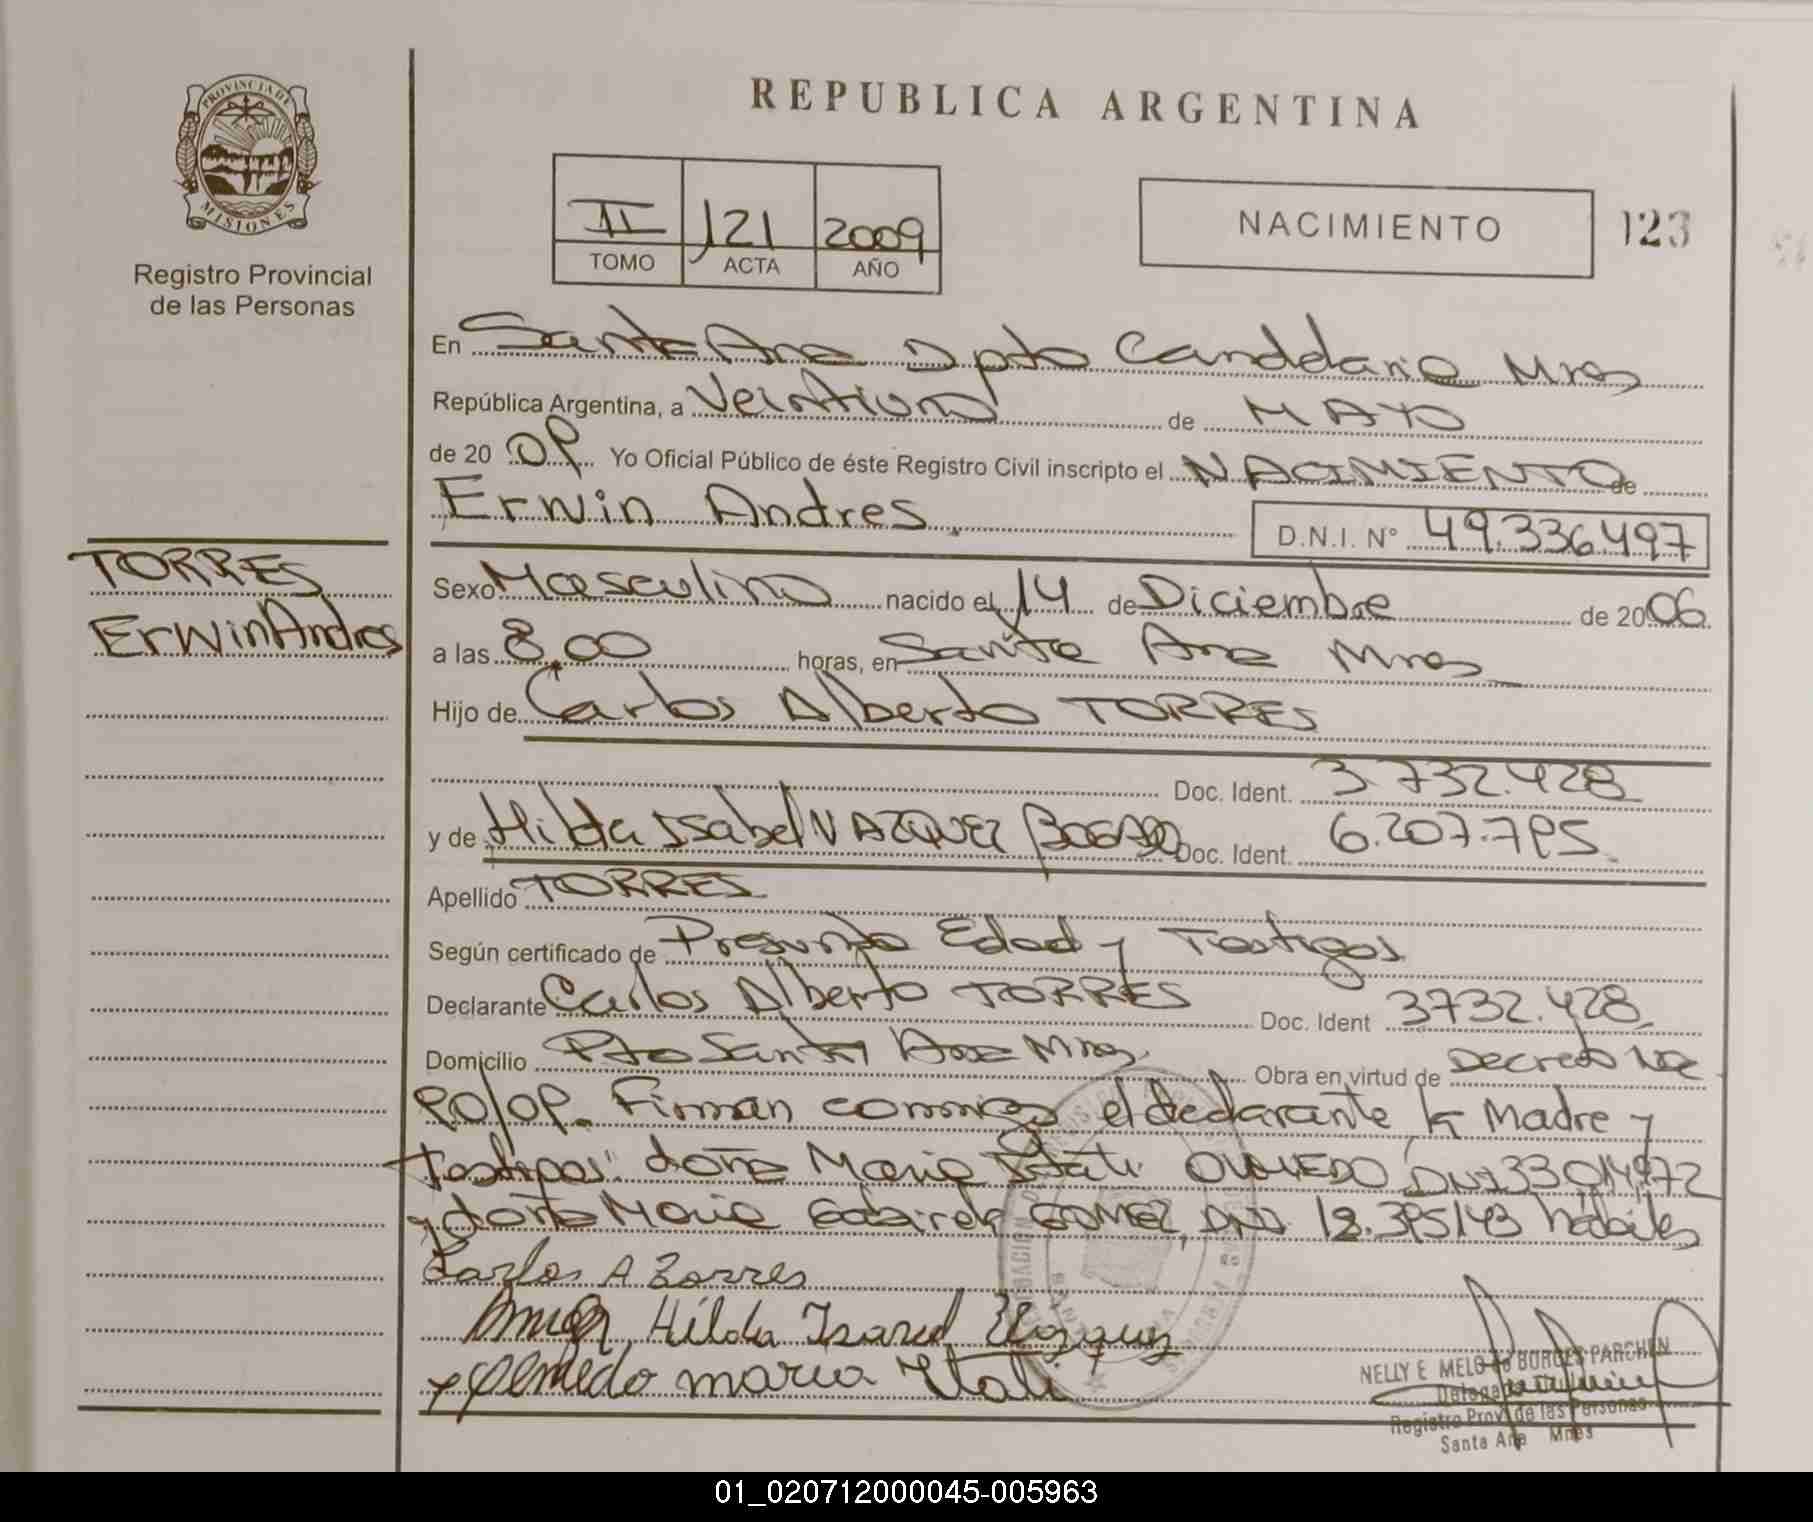 PROVINCIA DE
MISIONES
Registro Provincial
de las Personas
REPUBLICA ARGENTINA
II 121 2009
TOMO ACTA AÑO
NACIMIENTO 123
En Santa Ana Dpto Candelaria Mnes
República Argentina, a Veintiuno de MAYO
de 20 09 Yo Oficial Público de éste Registro Civil inscripto el NACIMIENTO de
Erwin Andres D.N.I. N° 49.336497
TORRES
Erwin Andres
Sexo Masculino nacido el 14 de Diciembre de 2006
a las 8,00 horas, en Santa Ana Mnes
Hijo de Carlos Alberto TORRES
Doc. Ident. 3.732.428
y de Hilda Issabel VAZQUEZ BOGADO Doc. Ident. 6.207.795
Apellido TORRES
Según certificado de Presunta Edad y Testigos
Declarante Carlos Alberto TORRES Doc. Ident 3732.428
Domicilio Pto Santa Ana Mnes Obra en virtud de Decreto No
90/09. Firman conmigo el declarante la Madre y
testigos: doña Maria Itati OLMEDO DNI 33014972
y doña Maria Gabirela GOMEZ, DNI 18.395143 habiles
Carlos A Torres
Hilda Isabel
Olmedo maria Itati
NELLY E MELO de BORGES PARCHEN
Delegada Titular
Registro Prov. de las Personas
Santa Ana Mnes
01_020712000045-005963